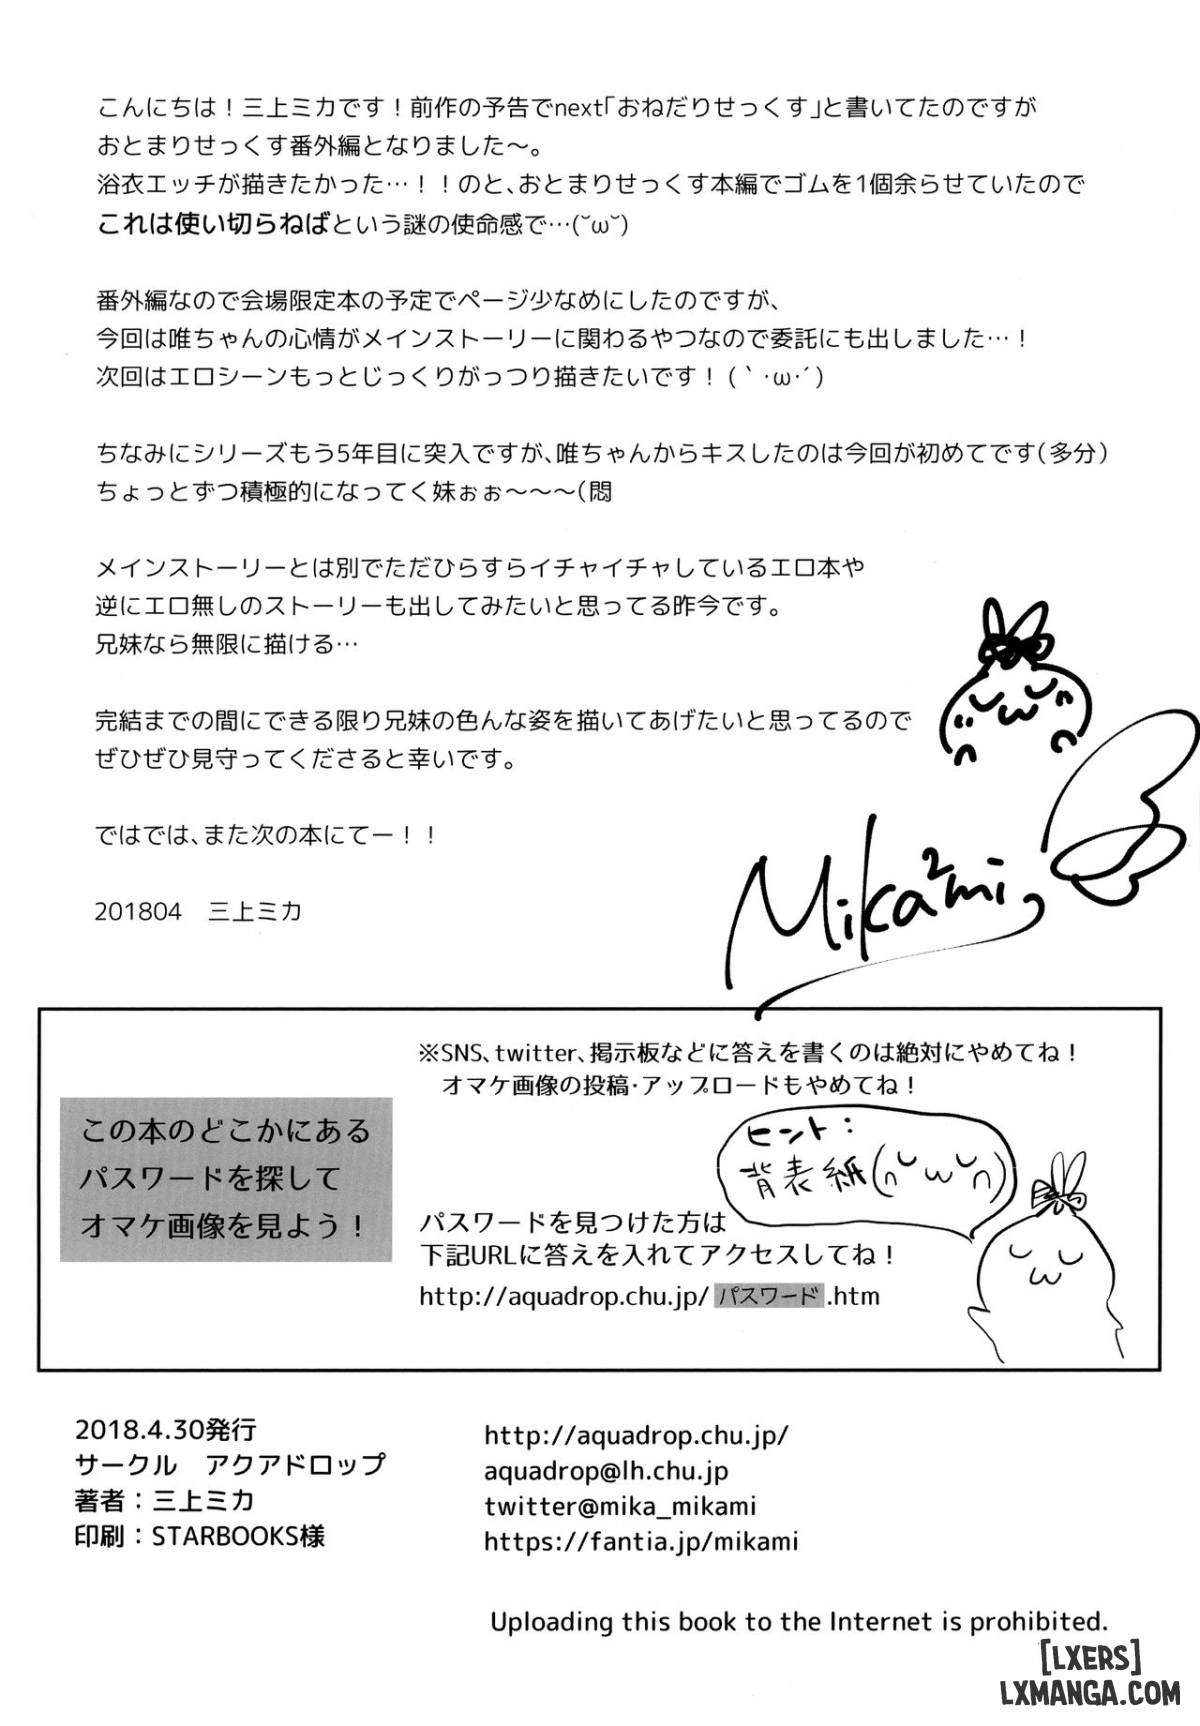 こんにちは！三上ミカです！前作の予告でnext「おねだりせっくす」と書いてたのですが
おとまりせっくす番外編となりました〜。
浴衣エッチが描きたかった…！！のと、おとまりせっくす本編でゴムを1個余らせていたので
これは使い切らねばという謎の使命感で…(˘ω˘)
番外編なので会場限定本の予定でページ少なめにしたのですが、
今回は唯ちゃんの心情がメインストーリーに関わるやつなので委託にも出しました…！
次回はエロシーンもっとじっくりがっつり描きたいです！(｀･ω･´)
ちなみにシリーズもう5年目に突入ですが、唯ちゃんからキスしたのは今回が初めてです（多分）
ちょっとずつ積極的になってく妹ぉぉ〜〜〜（悶
メインストーリーとは別でただひらすらイチャイチャしているエロ本や
逆にエロ無しのストーリーも出してみたいと思ってる昨今です。
兄妹なら無限に描ける…
完結までの間にできる限り兄妹の色んな姿を描いてあげたいと思ってるので
ぜひぜひ見守ってくださると幸いです。
ではでは、また次の本にてー！！
201804　三上ミカ
Mika2mi
※SNS、twitter、掲示板などに答えを書くのは絶対にやめてね！
オマケ画像の投稿・アップロードもやめてね！
この本のどこかにある
パスワードを探して
オマケ画像を見よう！
ヒント：
背表紙
パスワードを見つけた方は
下記URLに答えを入れてアクセスしてね！
http://aquadrop.chu.jp/パスワード.htm
2018.4.30発行
サークル　アクアドロップ
著者：三上ミカ
印刷：STARBOOKS様
http://aquadrop.chu.jp/
aquadrop@lh.chu.jp
twitter@mika_mikami
https://fantia.jp/mikami
Uploading this book to the Internet is prohibited.
[LXERS]
LXMANGA.COM